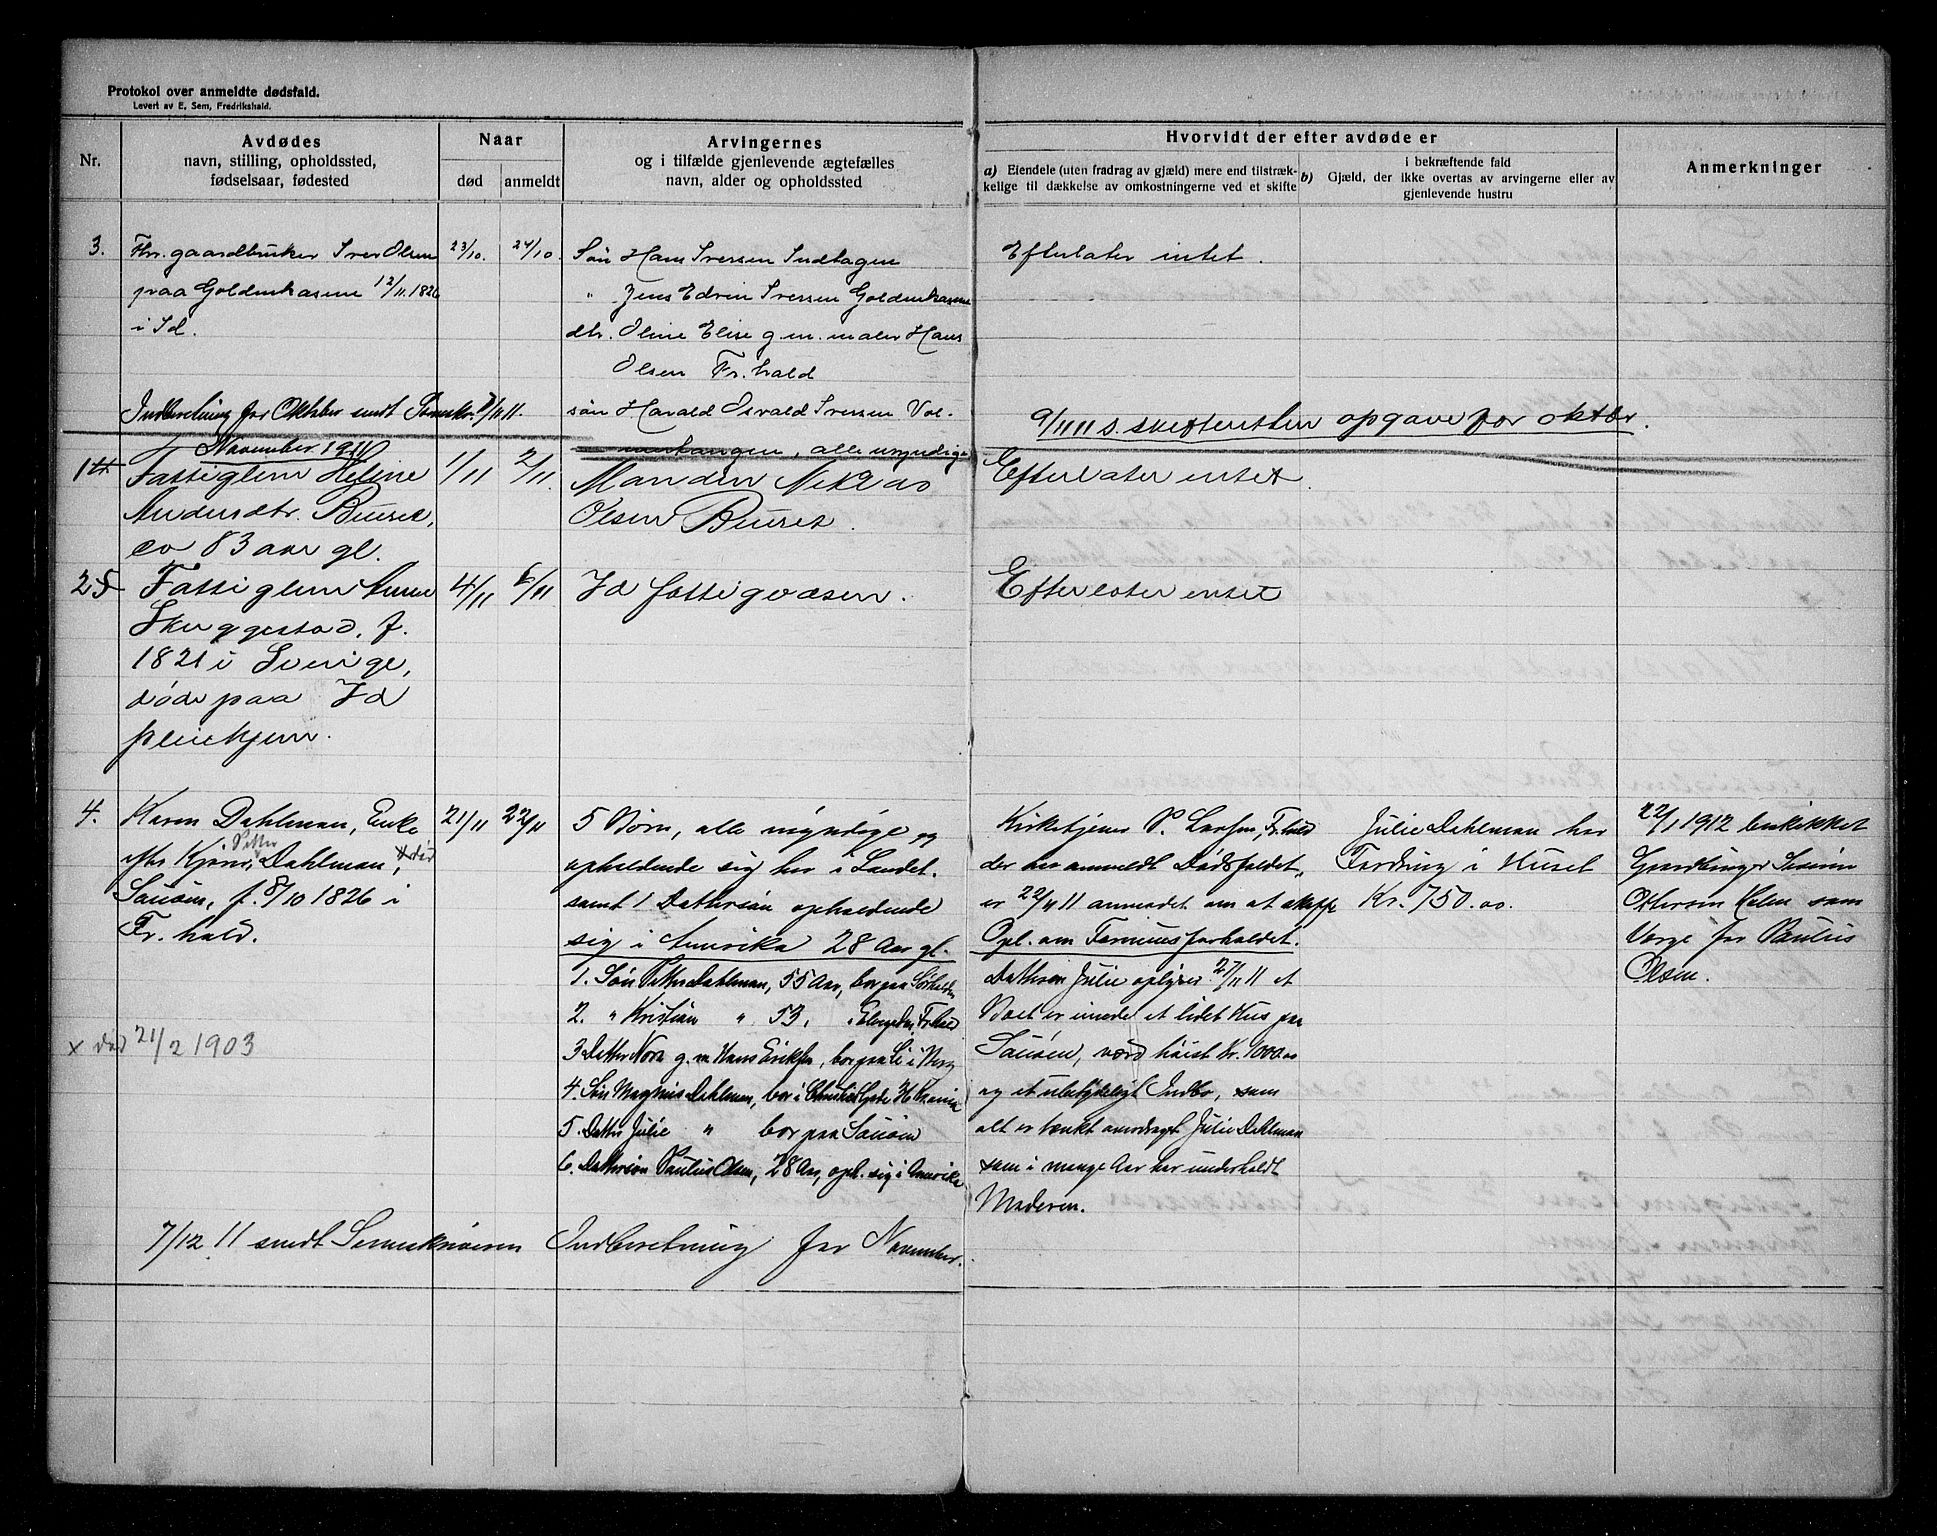 Protokol over anmeldte dødsfald.
Levert av E. Sem, Fredrikshald.
Nr.
Avdødes
navn, stilling, opholdssted,
fødselsaar, fødested
Naar
død
anmeldt
Arvingernes
og i tilfælde gjenlevende ægtefælles
navn, alder og opholdssted
Hvorvidt der efter avdøde er
a) Eiendele (uten fradrag av gjæld) mere end tilstræk-
kelige til dækkelse av omkostningerne ved et skifte
b) i bekræftende fald
Gjæld, der ikke overtas av arvingerne eller av
gjenlevende hustru
Anmerkninger
3.
Fhv. gaardbruker Iver Olsen
paa Goldenkasene 12/11.1826
i Id.
23/10.
24/10.
Søn Hans Iversen Indtagen
" Jens Edvin Iversen Goldenkasene
dtr. Oline Elise g.m. maler Hans
Olsen Fr.hald
søn Harald Osvald Iversen
alle myndige
Efterlater intet.
Indberetning for Oktober sendt 7/11 11.
9/11 11 s. skifteretten opgave for oktbr.
November 1911
1
Fattiglem Heline
Andersdtr. Buset,
ca 83 aar gl.
1/11
2/11.
Manden Niklas
Olsen Buset.
Efterlater intet.
2
Fattiglem
Skuggestad, f.
1821 i Sverige,
døde paa Id
pleiehjem.
4/11
6/11
Id fattigvæsen.
Efterlater intet
4.
Karen Dahlman, Enke
efter Petter Dahlman, x død
Sauøen, f. 8/10 1826 i
Fr. hald.
x død 21/2 1903
21/11
22/11
5 Børn, alle myndige og
opholdende sig her i Landet.
samt 1 Dattersøn opholdende
sig i Amerika 28 Aar gl.
1. Søn Petter Dahlman, 55 Aar, bor paa
2. " Kristian " 53, Fr.hald
3 Datter Nora g. m. Hans Eriksen, bor paa Li i Berg
4. Søn Magnus Dahlman, bor i
5. Datter Julie " bor paa Sauøen
6. Dattersøn Paulus Olsen, 28 Aar, oph. sig i Amerika
Kirketjener P. Larsen, Fr.hald
der har anmeldt Dødsfaldet,
er 22/11 11 anmodet om at skaffe
Opl. om Formuesforholdet.
Datteren Julie oplyser 27/11 11 at
Boet er eiende et lidet Hus paa
Sauøen, værd høist Kr. 1000.00
og et ubetydeligt Indbo, som
alt er tænkt overdraget Julie Dahlman
som i mange Aar har underholdt
Moderen.
Julie Dahlman har
Fordring i Huset
Kr. 750.00.
22/1 1912 beskikket
Gaardbruger
som
Verge for Paulus
Olsen.
7/12 11 sendt Sorenskriveren Indberetning for November.